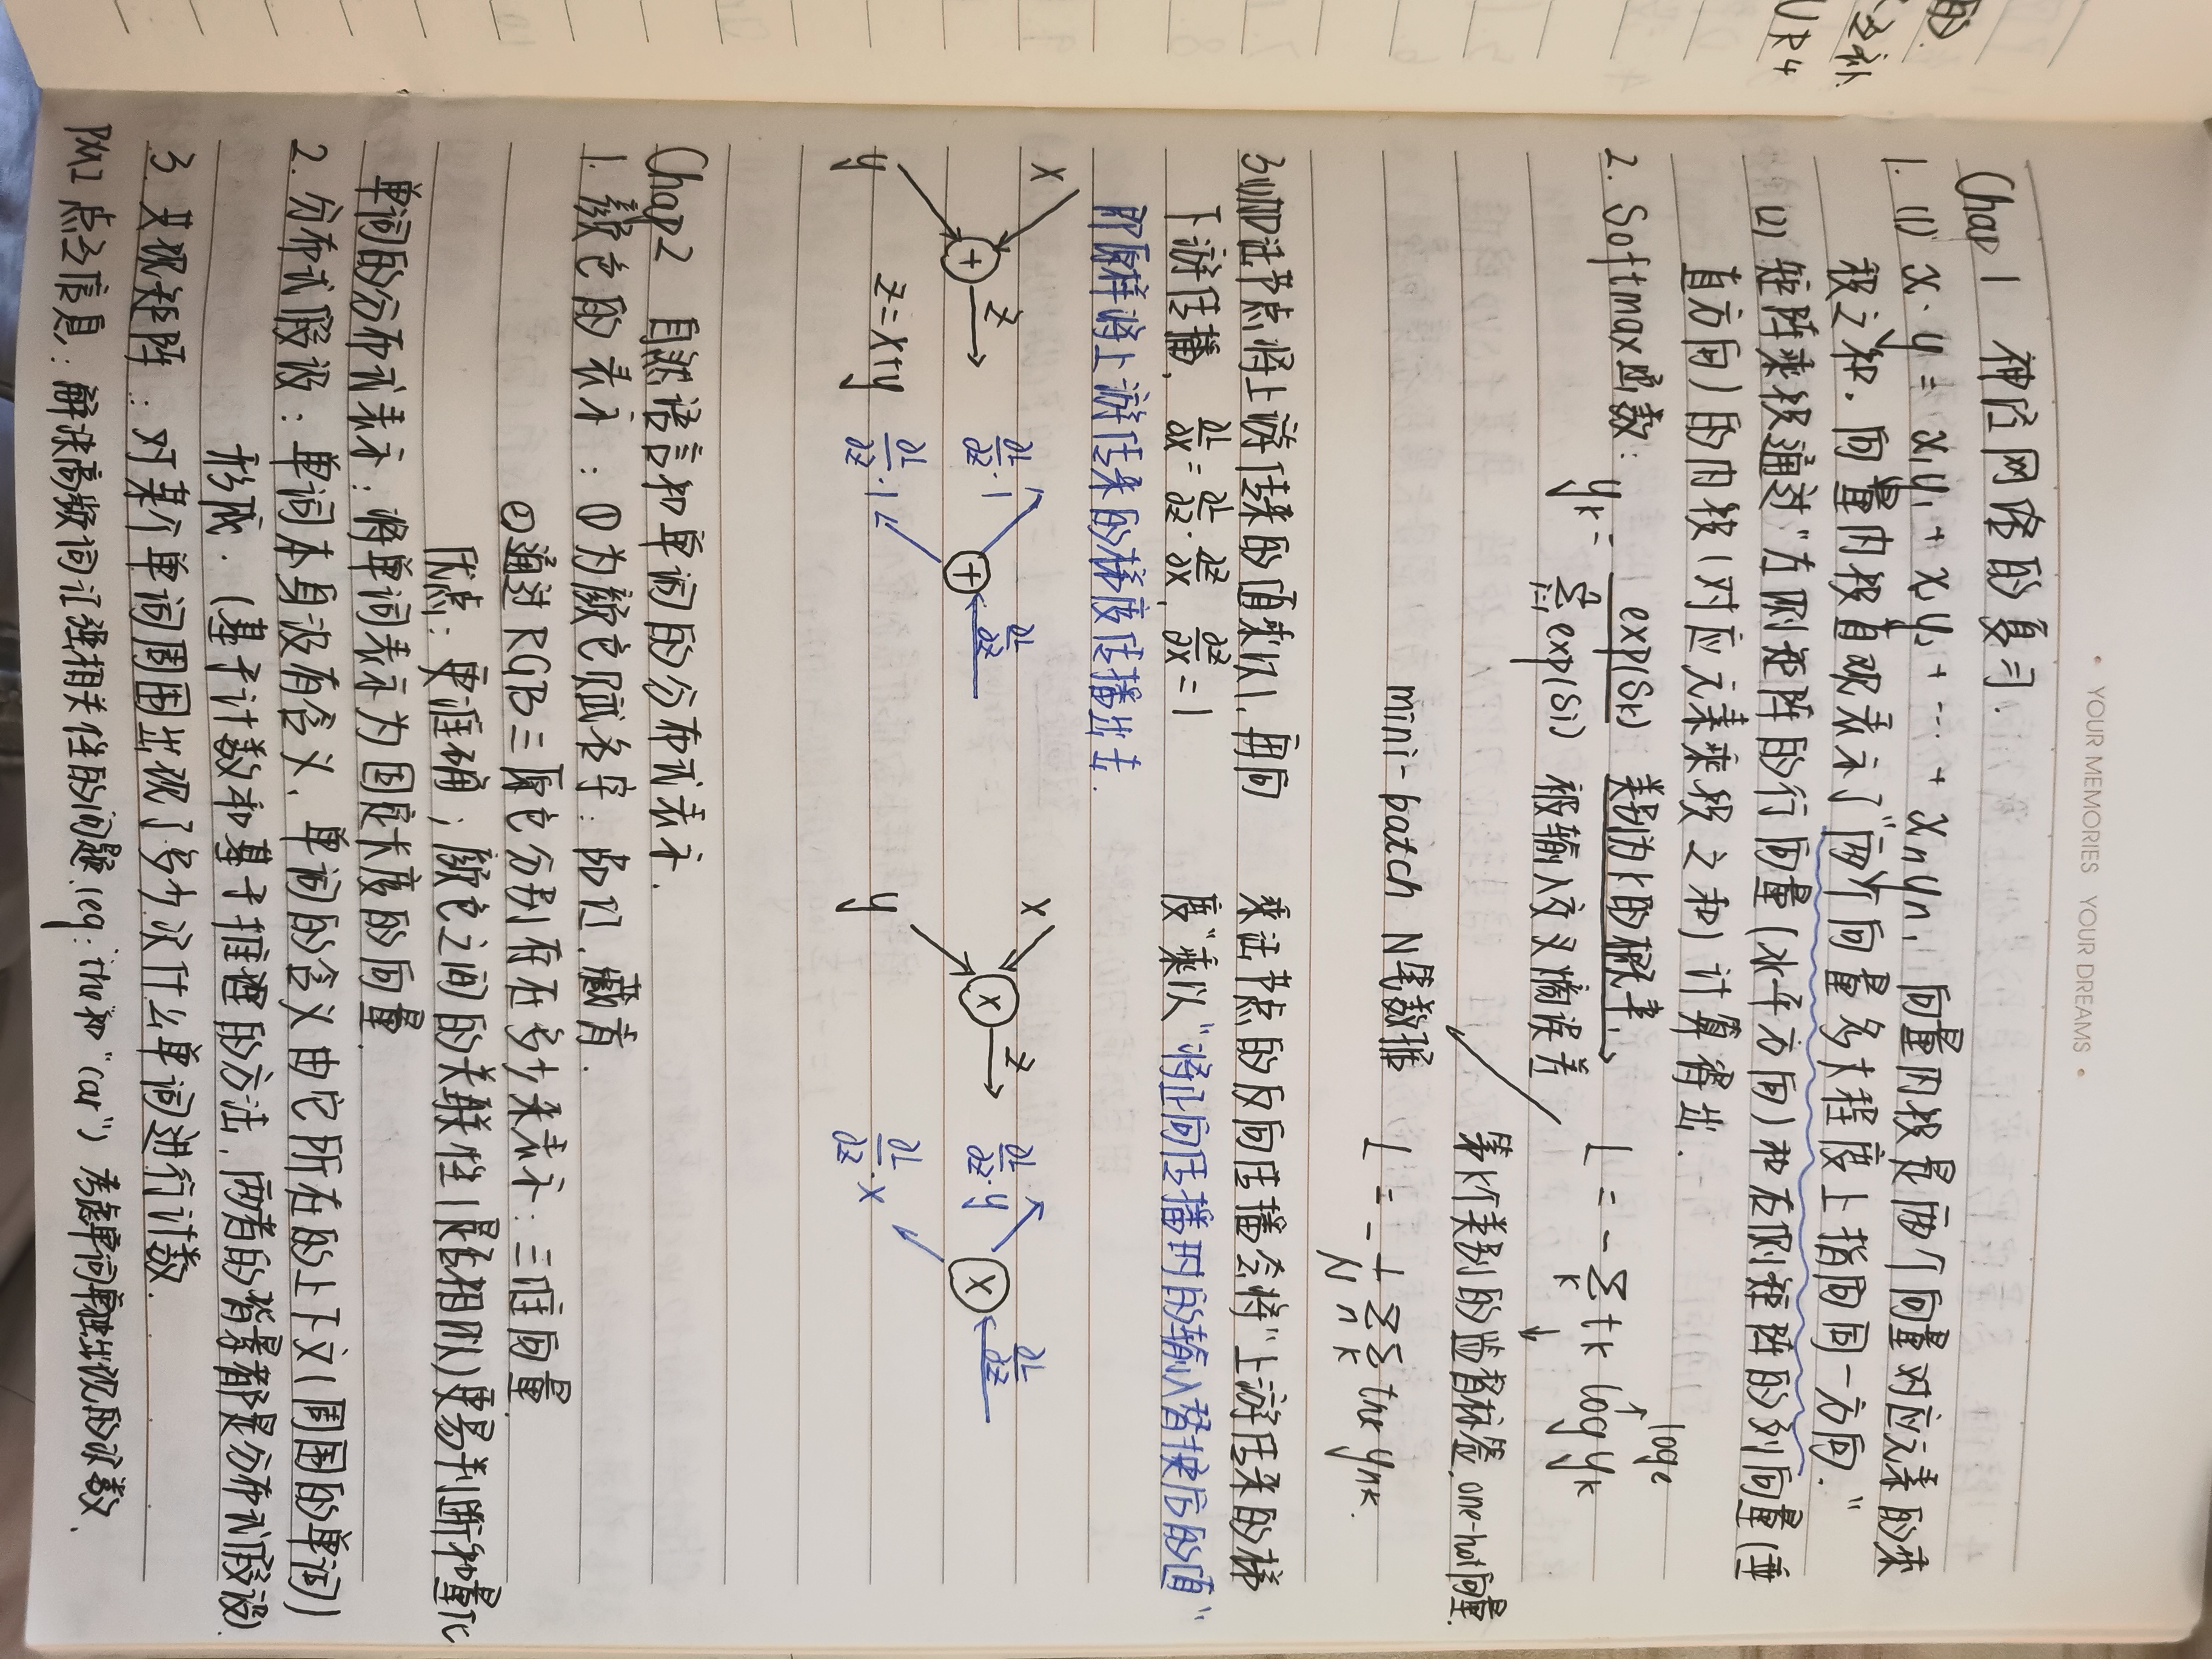 • YOUR MEMORIES YOUR DREAMS •
Chap 1 神经网络的复习.
1. (1) x·y = x₁y₁ + x₂y₂ + ... + xnyn, 向量内积是两个向量对应元素的乘
积之和. 向量内积直观表示了“两个向量多大程度上指向同一方向.”
(2) 矩阵乘积通过“左侧矩阵的行向量(水平方向)和右侧矩阵的列向量(垂
直方向)的内积(对应元素乘积之和)计算得出.
2. Softmax函数: yk = exp(Sk) / Σⁿᵢ₌₁ exp(Si) 类别为k的概率, → L = - Σk tk log yk
loge
被输入交叉熵误差
第k个类别的监督标签, one-hot向量.
mini-batch N笔数据 L = - 1/N Σn Σk tnk ynk.
3. 加法节点将上游传来的值乘以1, 再向
下游传播, ∂L/∂x = ∂L/∂z · ∂z/∂x, ∂z/∂x = 1
即原样将上游传来的梯度传播出去.
乘法节点的反向传播会将“上游传来的梯
度”乘以“将正向传播时的输入替换后的值”
x
y
+
z
z = x+y
∂L/∂z · 1
∂L/∂z · 1
+
∂L/∂z
x
y
x
z
∂L/∂z · y
∂L/∂z · x
x
∂L/∂z
Chap2 自然语言和单词的分布式表示.
1. 颜色的表示: ① 为颜色赋名字: 如红, 靛青.
② 通过RGB三原色分别存在多少来表示: 三维向量
优点: 更准确; 颜色之间的关联性(是否相似)更易判断和量化
单词的分布式表示: 将单词表示为固定长度的向量.
2. 分布式假设: 单词本身没有含义, 单词的含义由它所在的上下文(周围的单词)
形成. (基于计数和基于推理的方法, 两者的背景都是分布式假设).
3. 共现矩阵: 对某个单词周围出现了多少次什么单词进行计数.
PMI 点互信息: 解决高频词汇强相关性的问题. (eg: “the”和“car”) 考虑单词单独出现的次数.